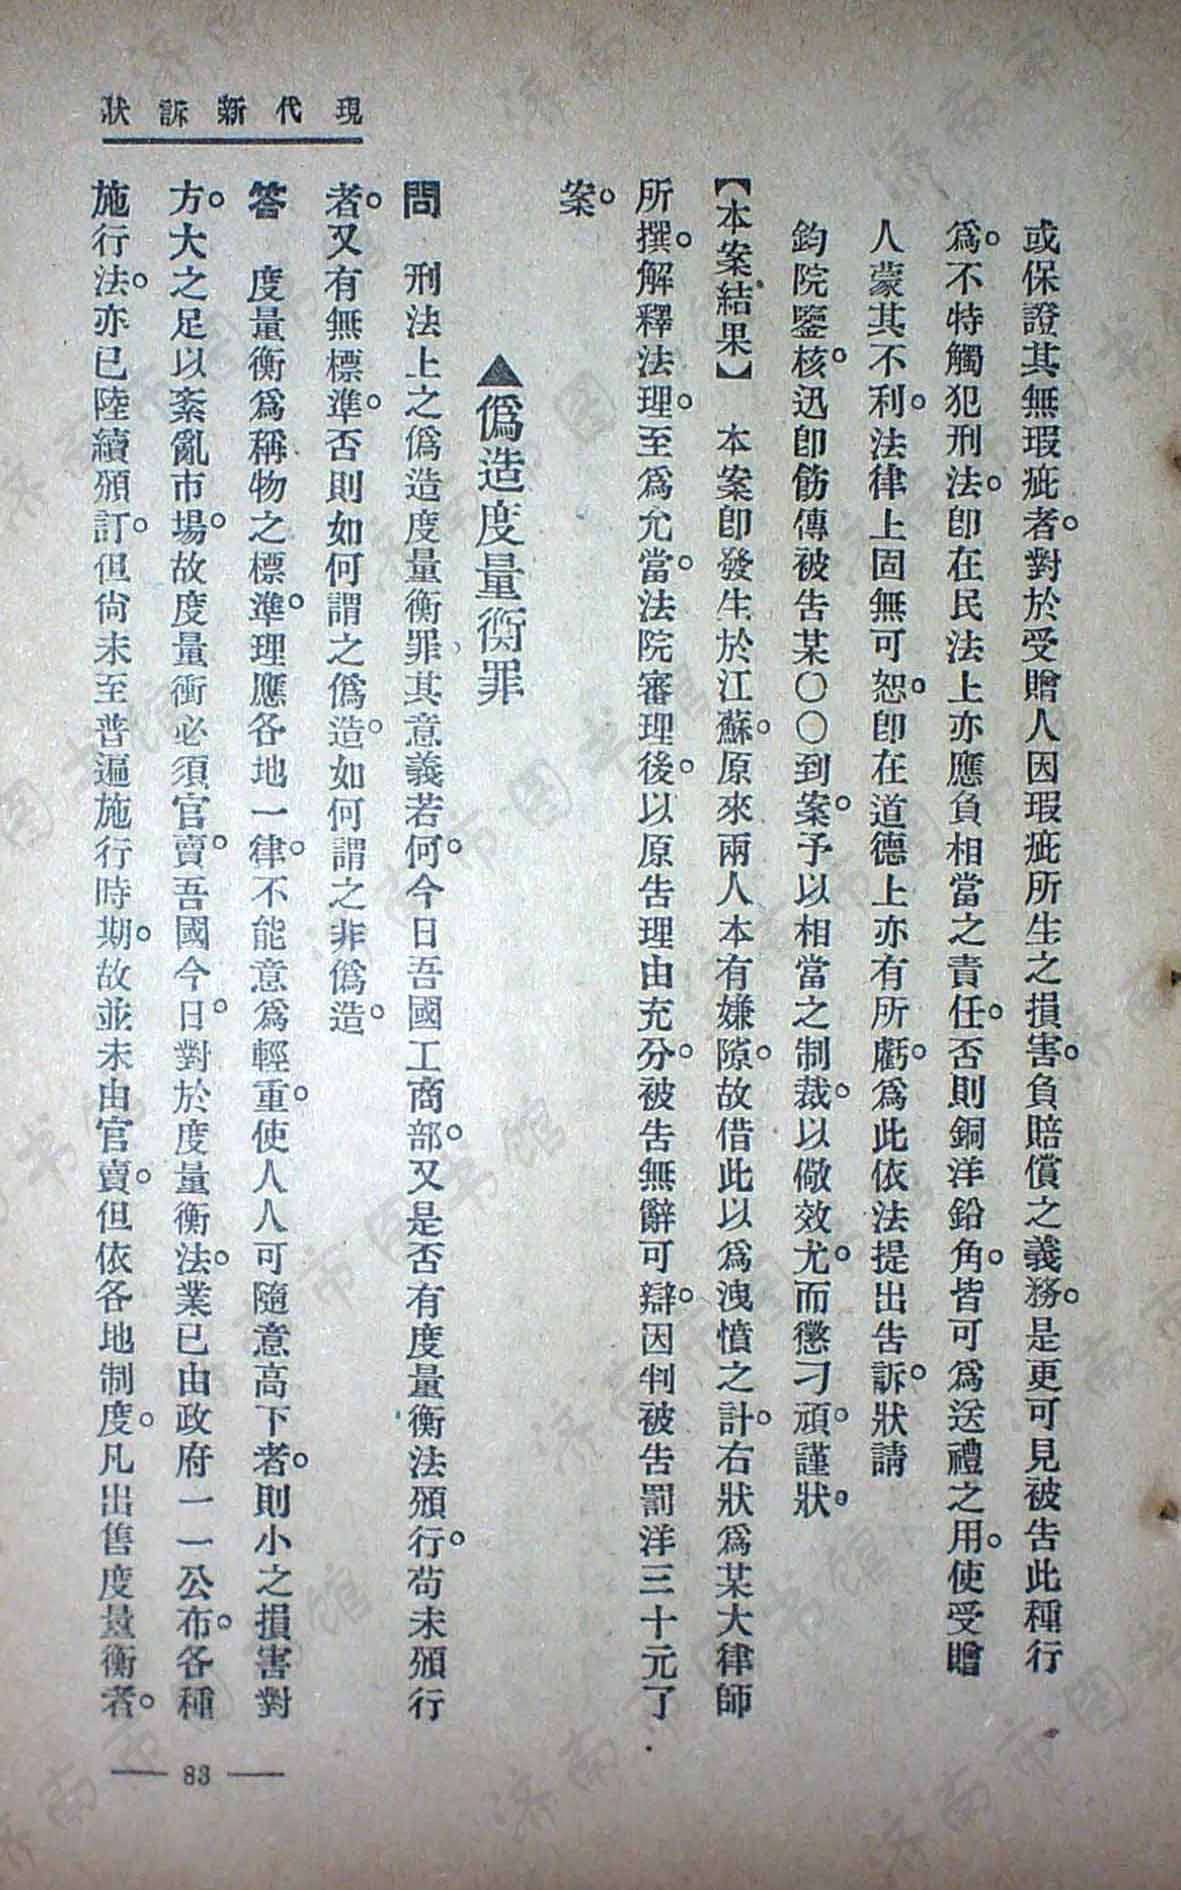 現代新訴狀
或保證其無瑕疵者。對於受贈人因瑕疵所生之損害。負賠償之義務。是更可見被告此種行
爲。不特觸犯刑法。卽在民法上亦應負相當之責任。否則銅洋鉛角。皆可爲送禮之用。使受贈
人蒙其不利。法律上固無可恕。卽在道德上亦有所虧。爲此依法提出告訴。狀請
鈞院鑒核。迅卽飭傳被告某〇〇到案。予以相當之制裁。以儆效尤。而懲刁頑。謹狀。
【本案結果】 本案卽發生於江蘇。原來兩人本有嫌隙。故借此以爲洩憤之計。右狀爲某大律師
所撰。解釋法理。至爲允當。法院審理後。以原告理由充分。被告無辭可辯。因判被告罰洋三十元了
案。
▲僞造度量衡罪
問 刑法上之僞造度量衡罪、其意義若何。今日吾國工商部。又是否有度量衡法頒行。苟未頒行
者。又有無標準。否則如何謂之僞造。如何謂之非僞造。
答 度量衡爲稱物之標準。理應各地一律。不能意爲輕重。使人人可隨意高下者。則小之損害對
方。大之足以紊亂市場。故度量衡必須官賣。吾國今日。對於度量衡法。業已由政府一一公布。各種
施行法。亦已陸續頒訂。但尙未至普遍施行時期。故並未由官賣。但依各地制度。凡出售度量衡者。
— 83 —
济南市图书馆